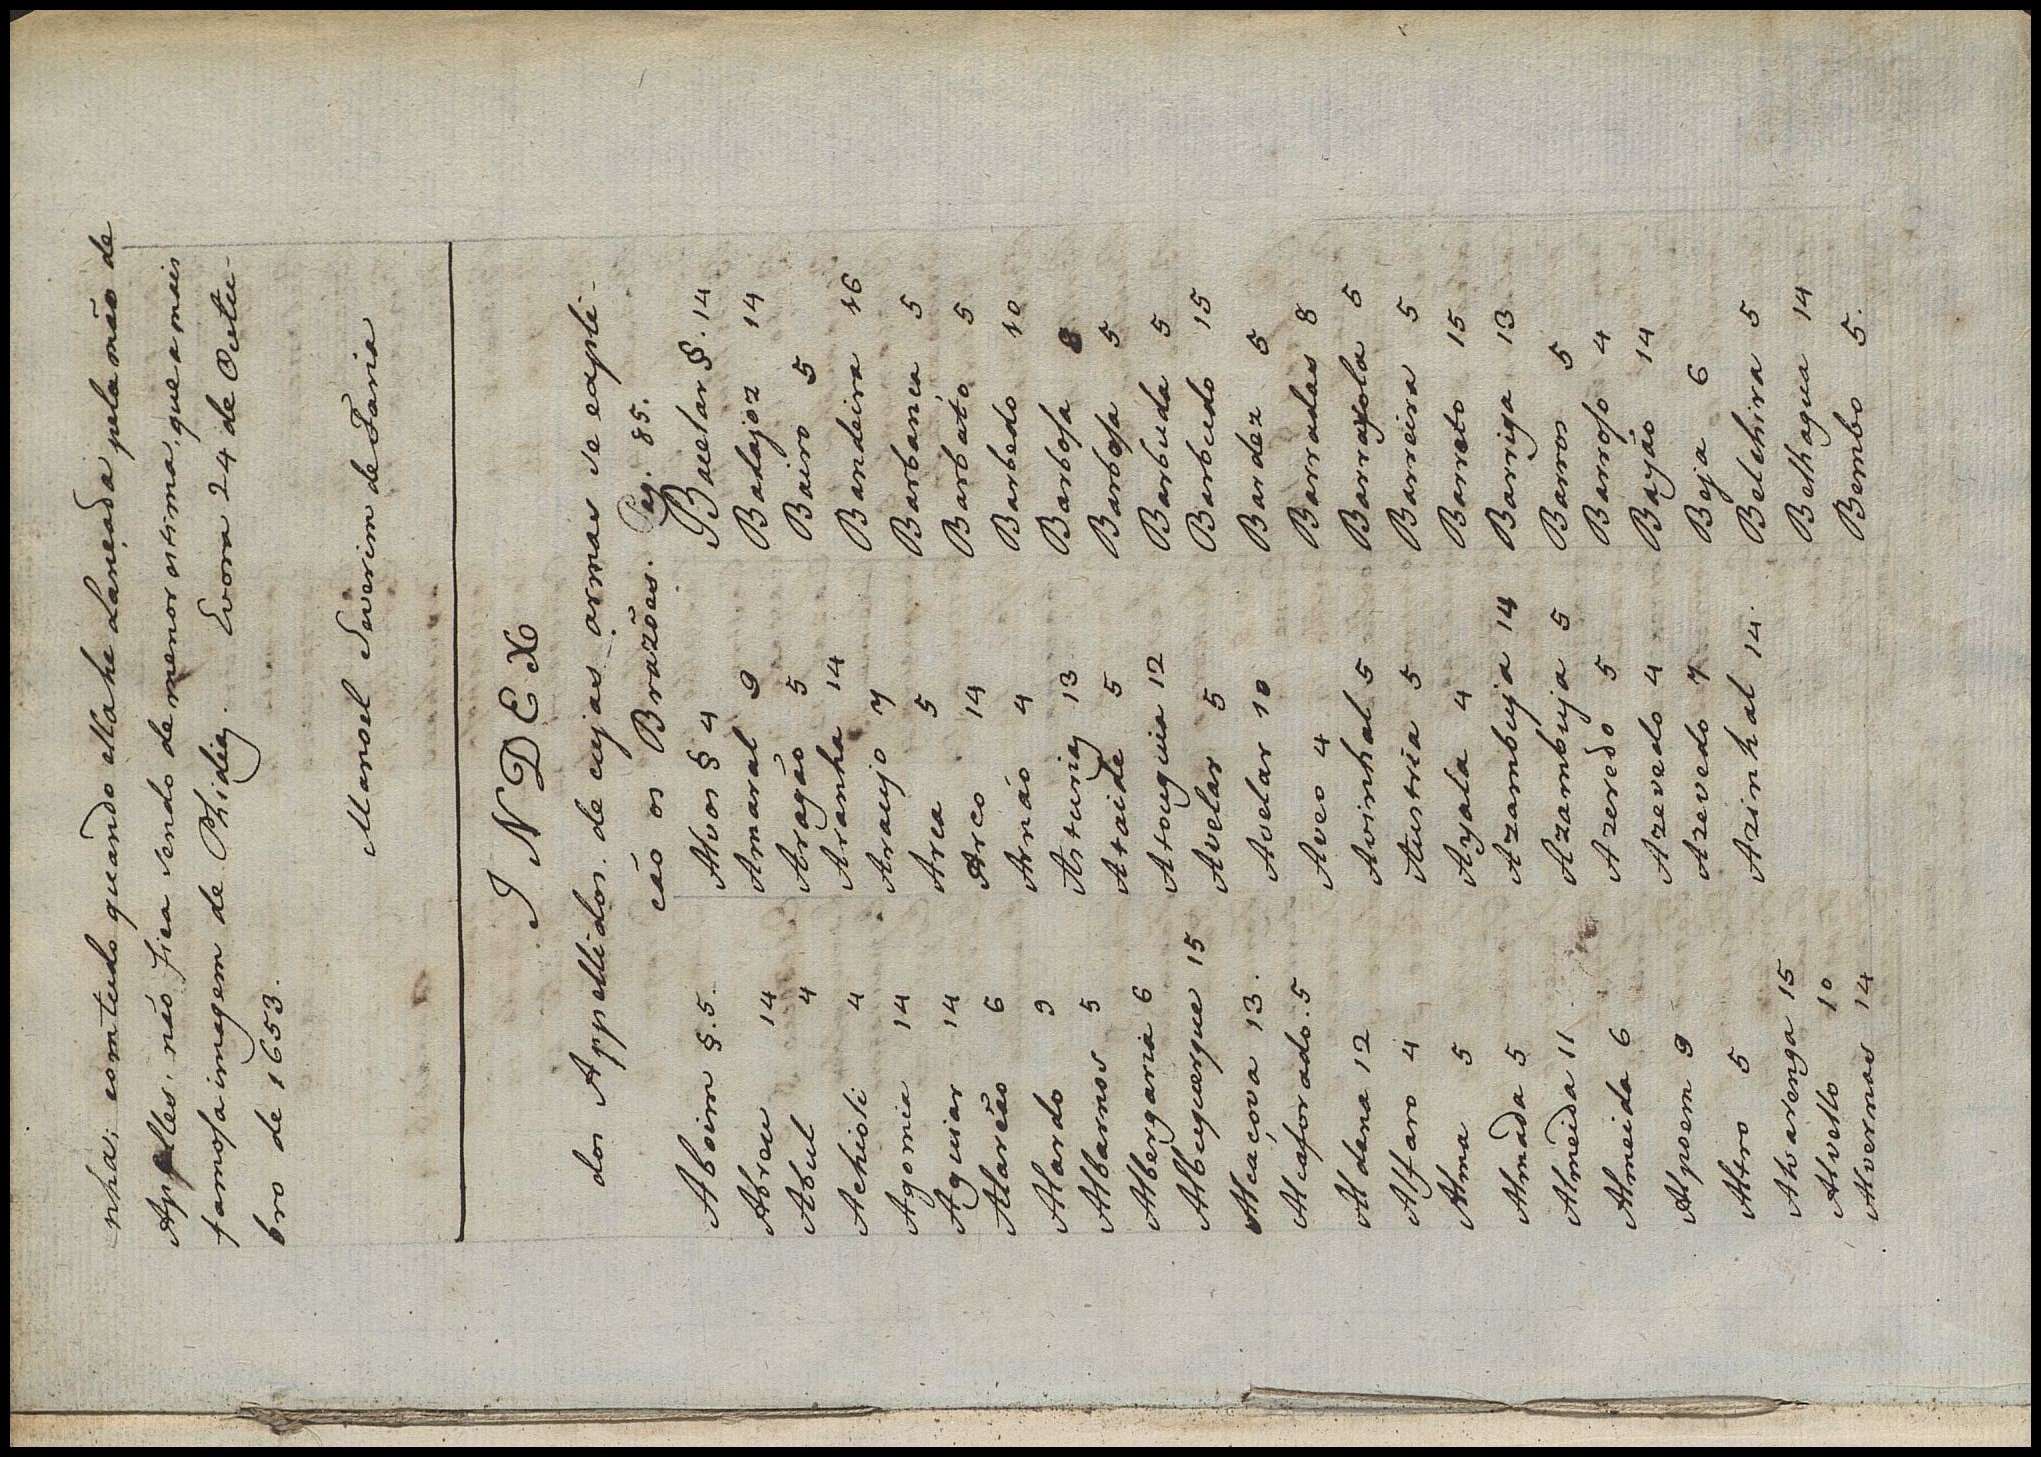 nha; comtudo quando olhahe lançada pela mão de
Apelles, não fica sendo de menor estima, que a mais
famosa imagem de Phidia. Evora 24 de Outu-
bro de 1653.
Manoel Severim de Faria
INDEX
dos Appellidos de cujas armas se expli-
cão os Brazões. Pag. 85.
Aboim §. 5.
Abreu 14
Abul 4
Achioli 4
Agomia 14
Aguiar 14
Alarcão 6
Alardo 9
Albarnos 5
Albergaria 6
Albuquerque 15
Alcaçova 13.
Alcaforado. 5
Aldana 12
Alfaro 4
Alma 5
Almada 5
Almeida 11
Almeida 6
Alpoem 9
Altro 5
Alvarenga 15
Alvello 10
Alvernas 14
Alvos § 4
Amaral 9
Aragão 5
Aranha 14
Araujo 7
Arca 5
Arco 14
Arnáo 4
Asturias 13
Ataide 5
Atouguia 12
Avelar 5
Avelar 10
Aveo 4
Avinhal 5
Austria 5
Ayala 4
Azambuja 14
Azambuja 5
Azeredo 5
Azevedo 4
Azevedo 7
Azinhal 14.
Bacelar §. 14
Badajoz 14
Bairo 5
Bandeira 16
Barbança 5
Barbato 5
Barbedo 10
Barbosa 8
Barbosa 5
Barbuda 5
Barbudo 15
Bardez 5
Barradas 8
Barrazola 5
Barreira 5
Barreto 15
Barriga 13
Barros 5
Barroso 4
Bayão 14
Beja 6
Belchira 5
Belhagua 14
Bembo 5.